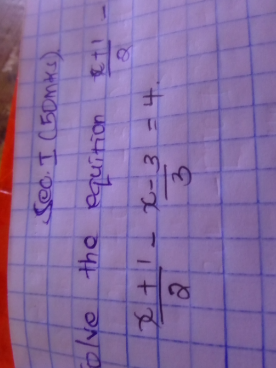 Sec. I (50mks)
olve the equition x+1/2 -
x+1/2 - x-3/3 = 4.